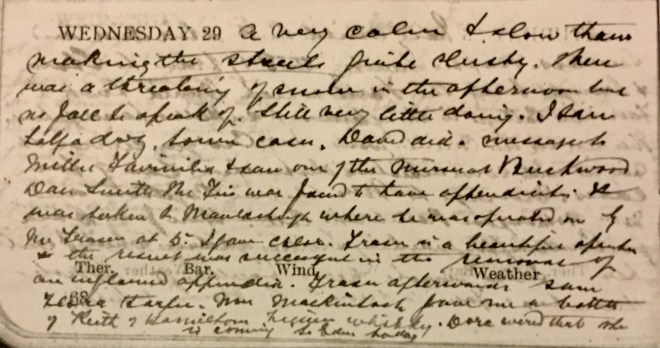 WEDNESDAY 29 A very calm & slow thaw
making the streets quite slushy. There
was a threatening of snow in the afternoon but
no fall to speak of. Still very little doing. I saw
half a doz. town cases. David did a message to
Millie & saw one of the nurses at Buckwood
Dan Smith was found to have appendicitis &
was taken to where he was operated on by
Mr Fraser at 5. I gave chlor. Fraser is a beautiful operator
& the result was successful in the removal of
Ther. Bar. Wind Weather
an inflamed appendix. Fraser afterwards saw
38
Mrs Mackintosh gave me a bottle
of Keith & Hamilton whisky. Dora wired that she
is coming to today